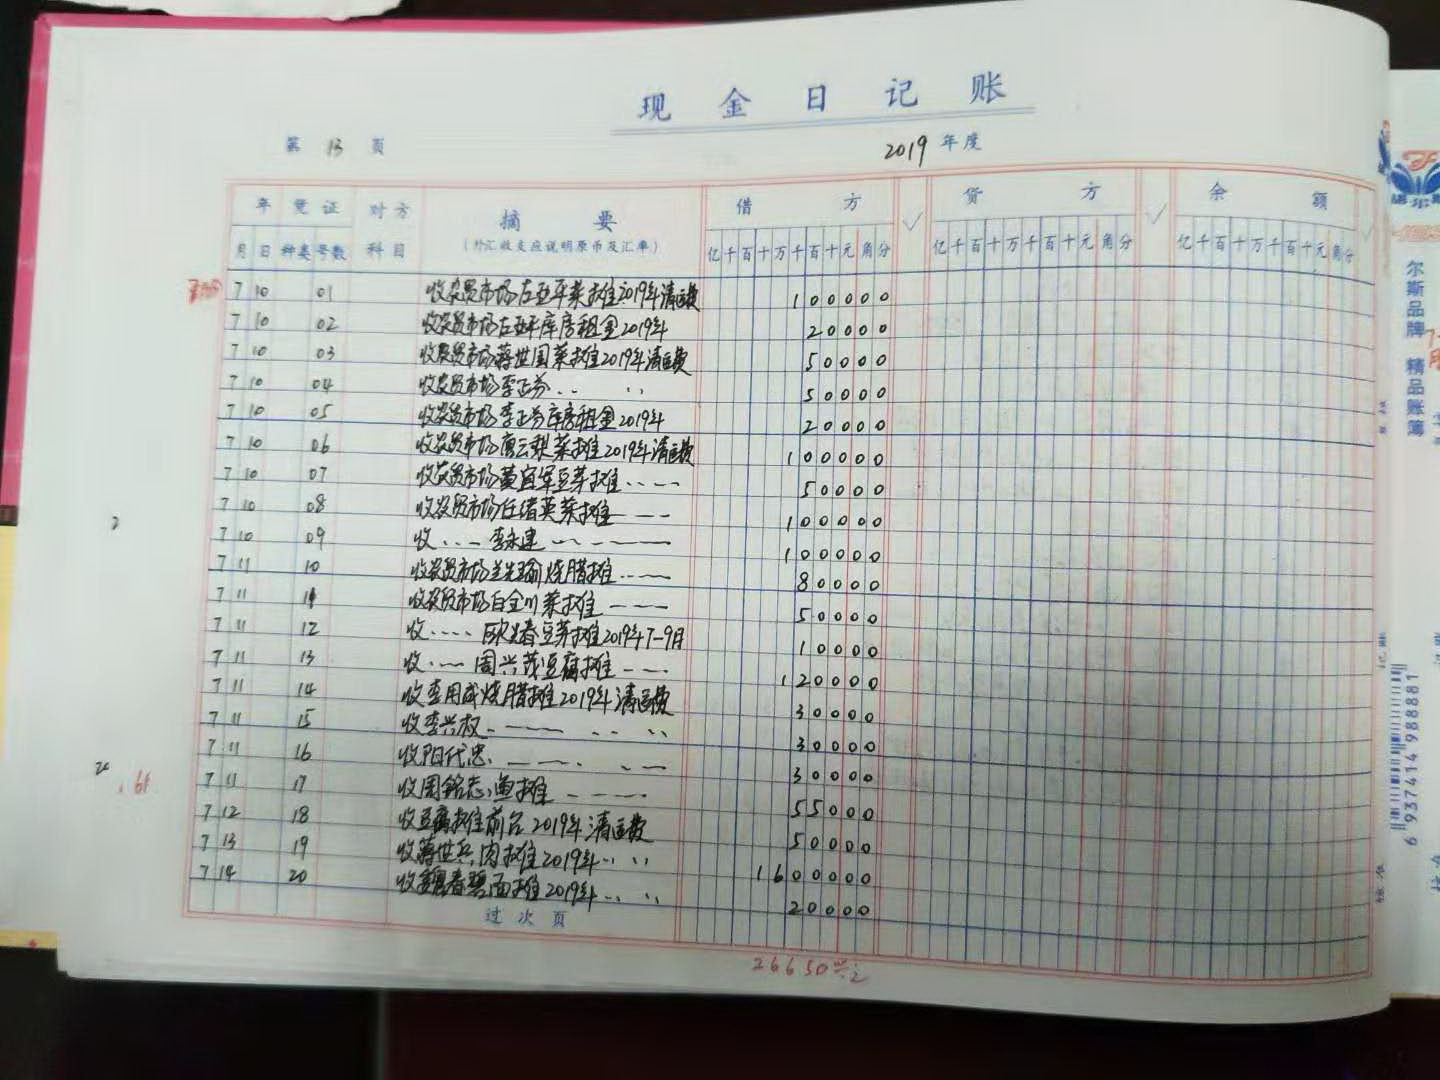 现金日记账
第 13 页
2019 年度
年 凭证 对方 摘要 借方 贷方 余额
月 日 种类 号数 科目 (外汇收支应说明原币及汇率) 亿千百十万千百十元角分 亿千百十万千百十元角分 亿千百十万千百十元角分
7 10 01 收农贸市场左亚平菜摊2019年清运费 100000
7 10 02 收农贸市场左亚平库房租金2019年 20000
7 10 03 收农贸市场蒋世国菜摊2019年清运费 50000
7 10 04 收农贸市场李正芬 50000
7 10 05 收农贸市场李正芬库房租金2019年 20000
7 10 06 收农贸市场唐云菜摊2019年清运费 100000
7 10 07 收农贸市场黄宜军豆芽摊 50000
7 10 08 收农贸市场任绪英菜摊 100000
7 10 09 收 李永建 100000
7 11 10 收农贸市场兰先瑜烧腊摊 80000
7 11 11 收农贸市场白金川菜摊 50000
7 11 12 收 春豆芽摊2019年7-9月 10000
7 11 13 收 周兴茂豆腐摊 120000
7 11 14 收李用成烧腊摊2019年清运费 30000
7 11 15 收李兴权 30000
7 11 16 收阳代忠 30000
7 11 17 收周铭志鱼摊 55000
7 12 18 收豆腐摊位前台2019年清运费 50000
7 13 19 收蒋世兵肉摊2019年 1600000
7 14 20 收魏春碧面摊2019年 20000
过次页
26650
61
尔斯品牌 精品账簿
6 937414 988881